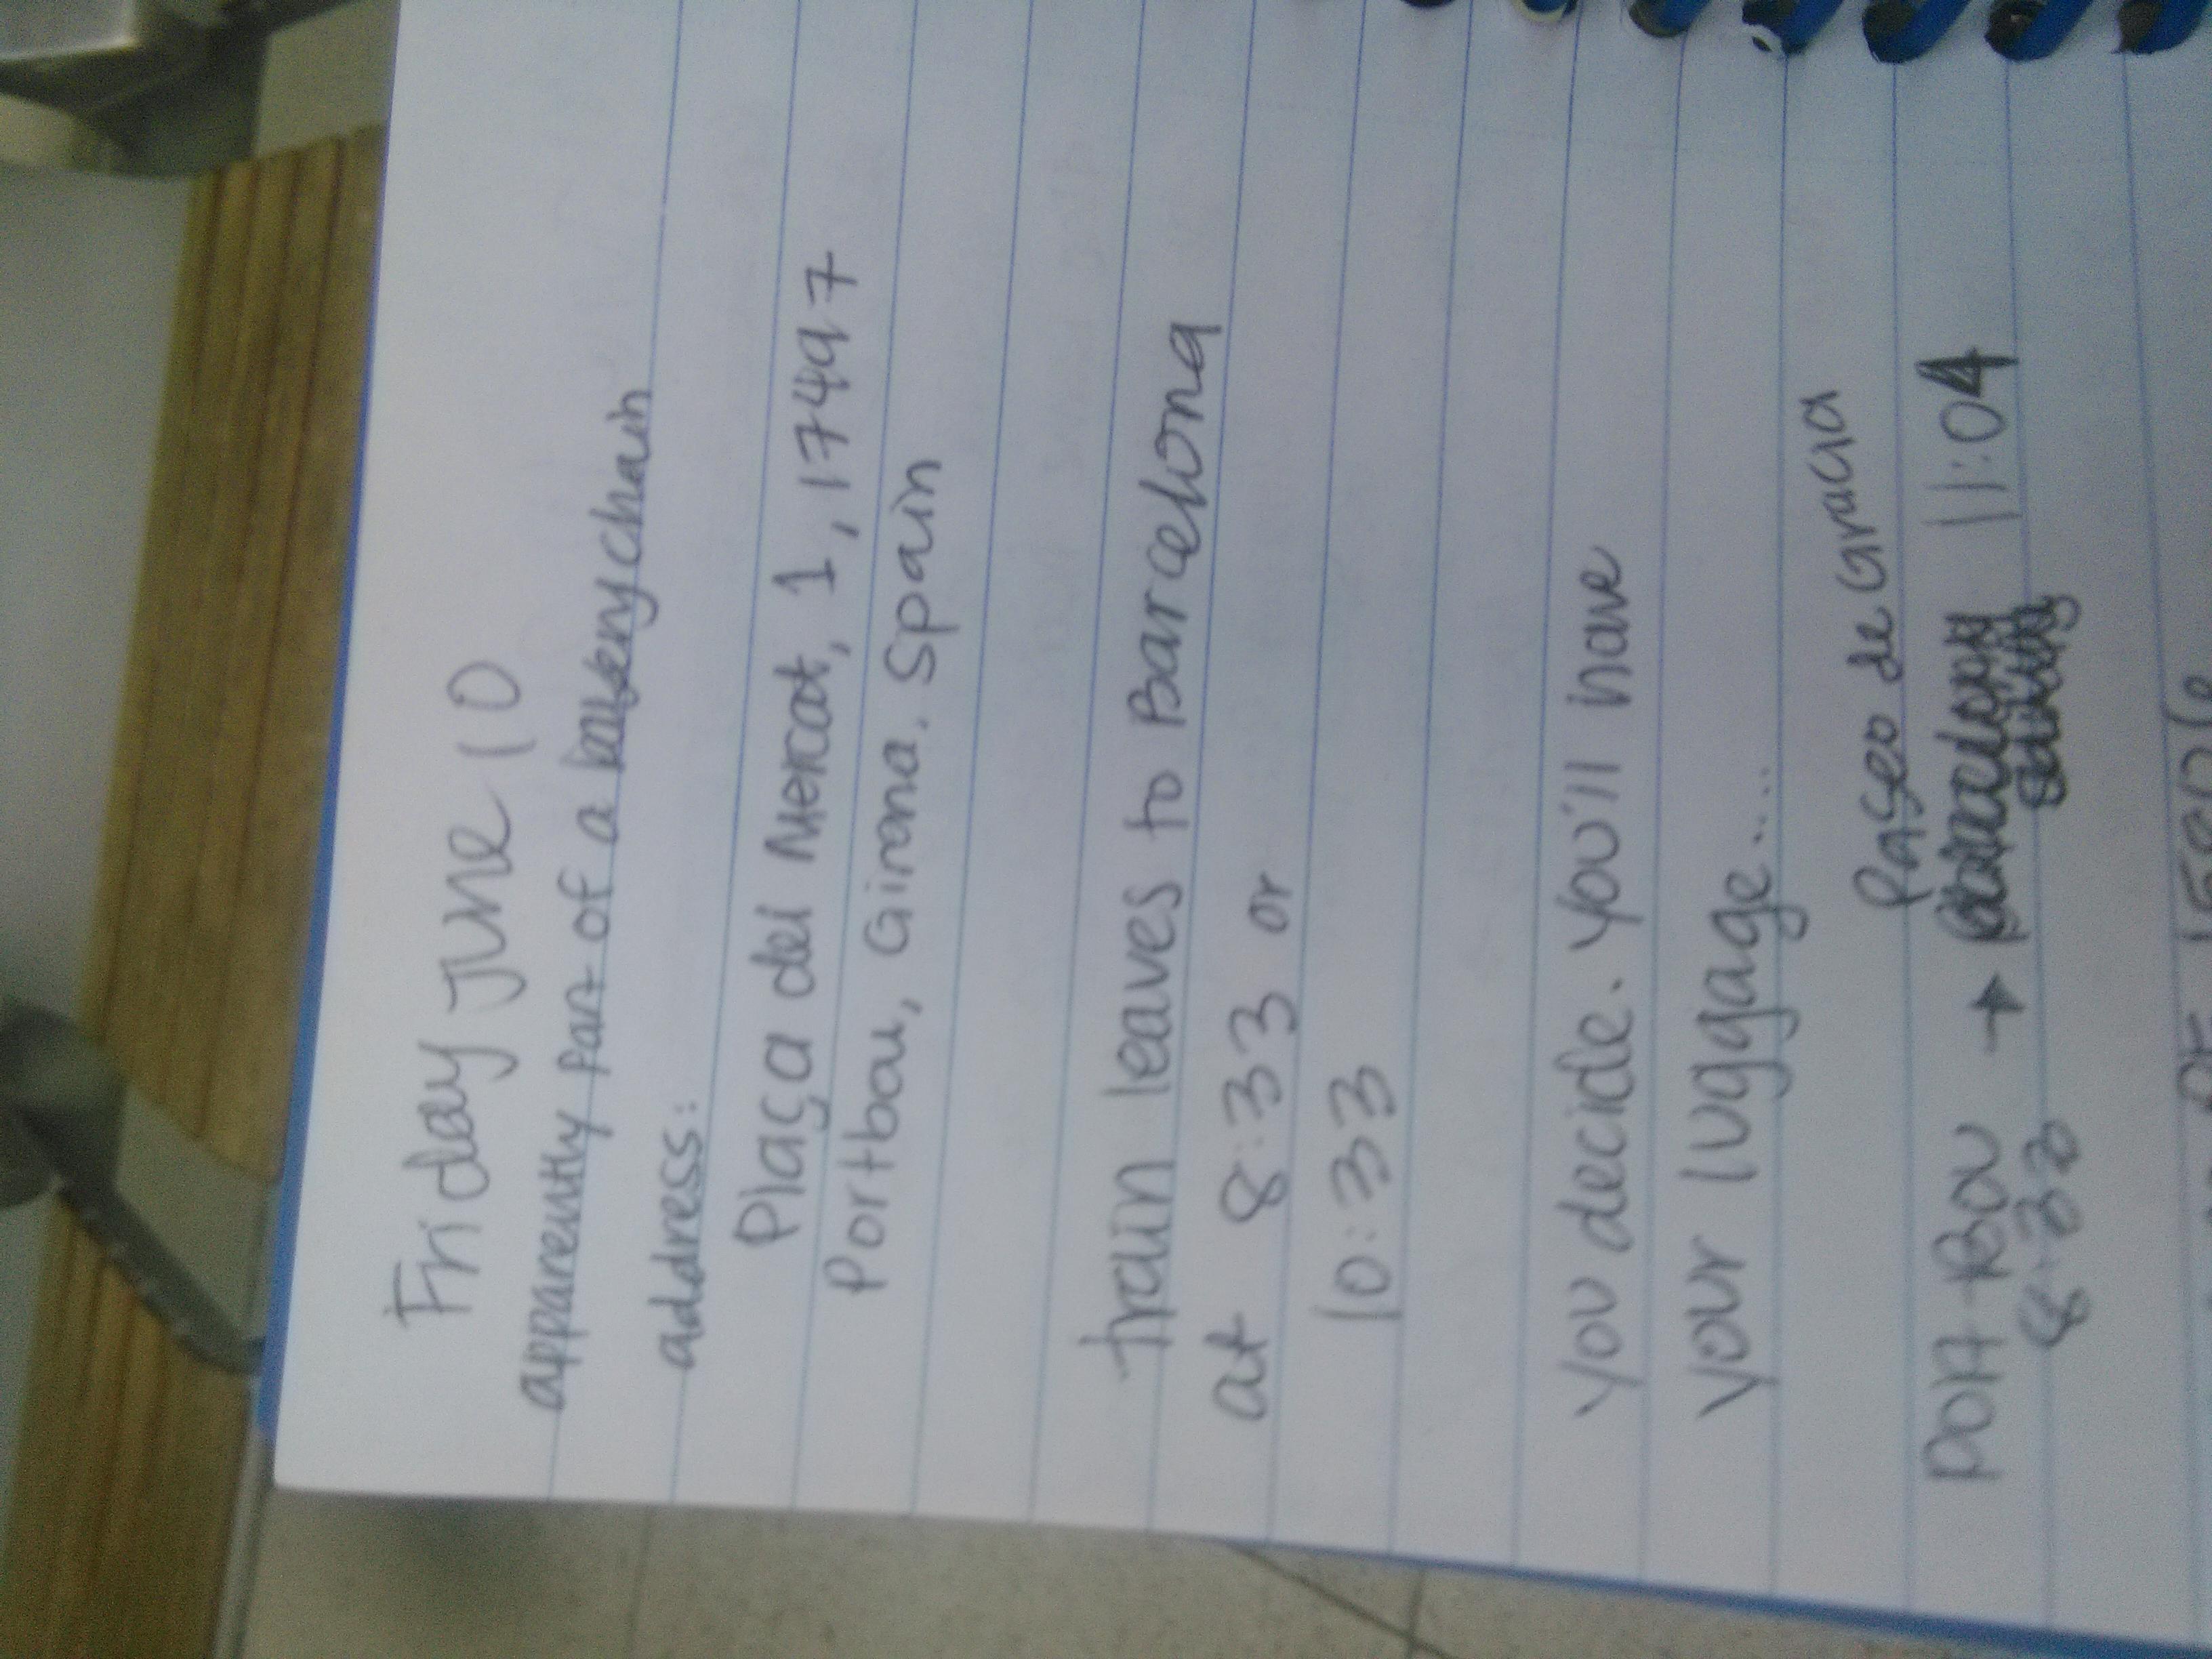 Friday June 10
apparently part of a bakery chain
address:
Plaça del Mercat, 1, 17497
Portbou, Girona. Spain
train leaves to Barcelona
at 8:33 or
10:33
you decide. you'll have
your luggage....
Paseo de Gracia
Port Bou → 11:04
8:33